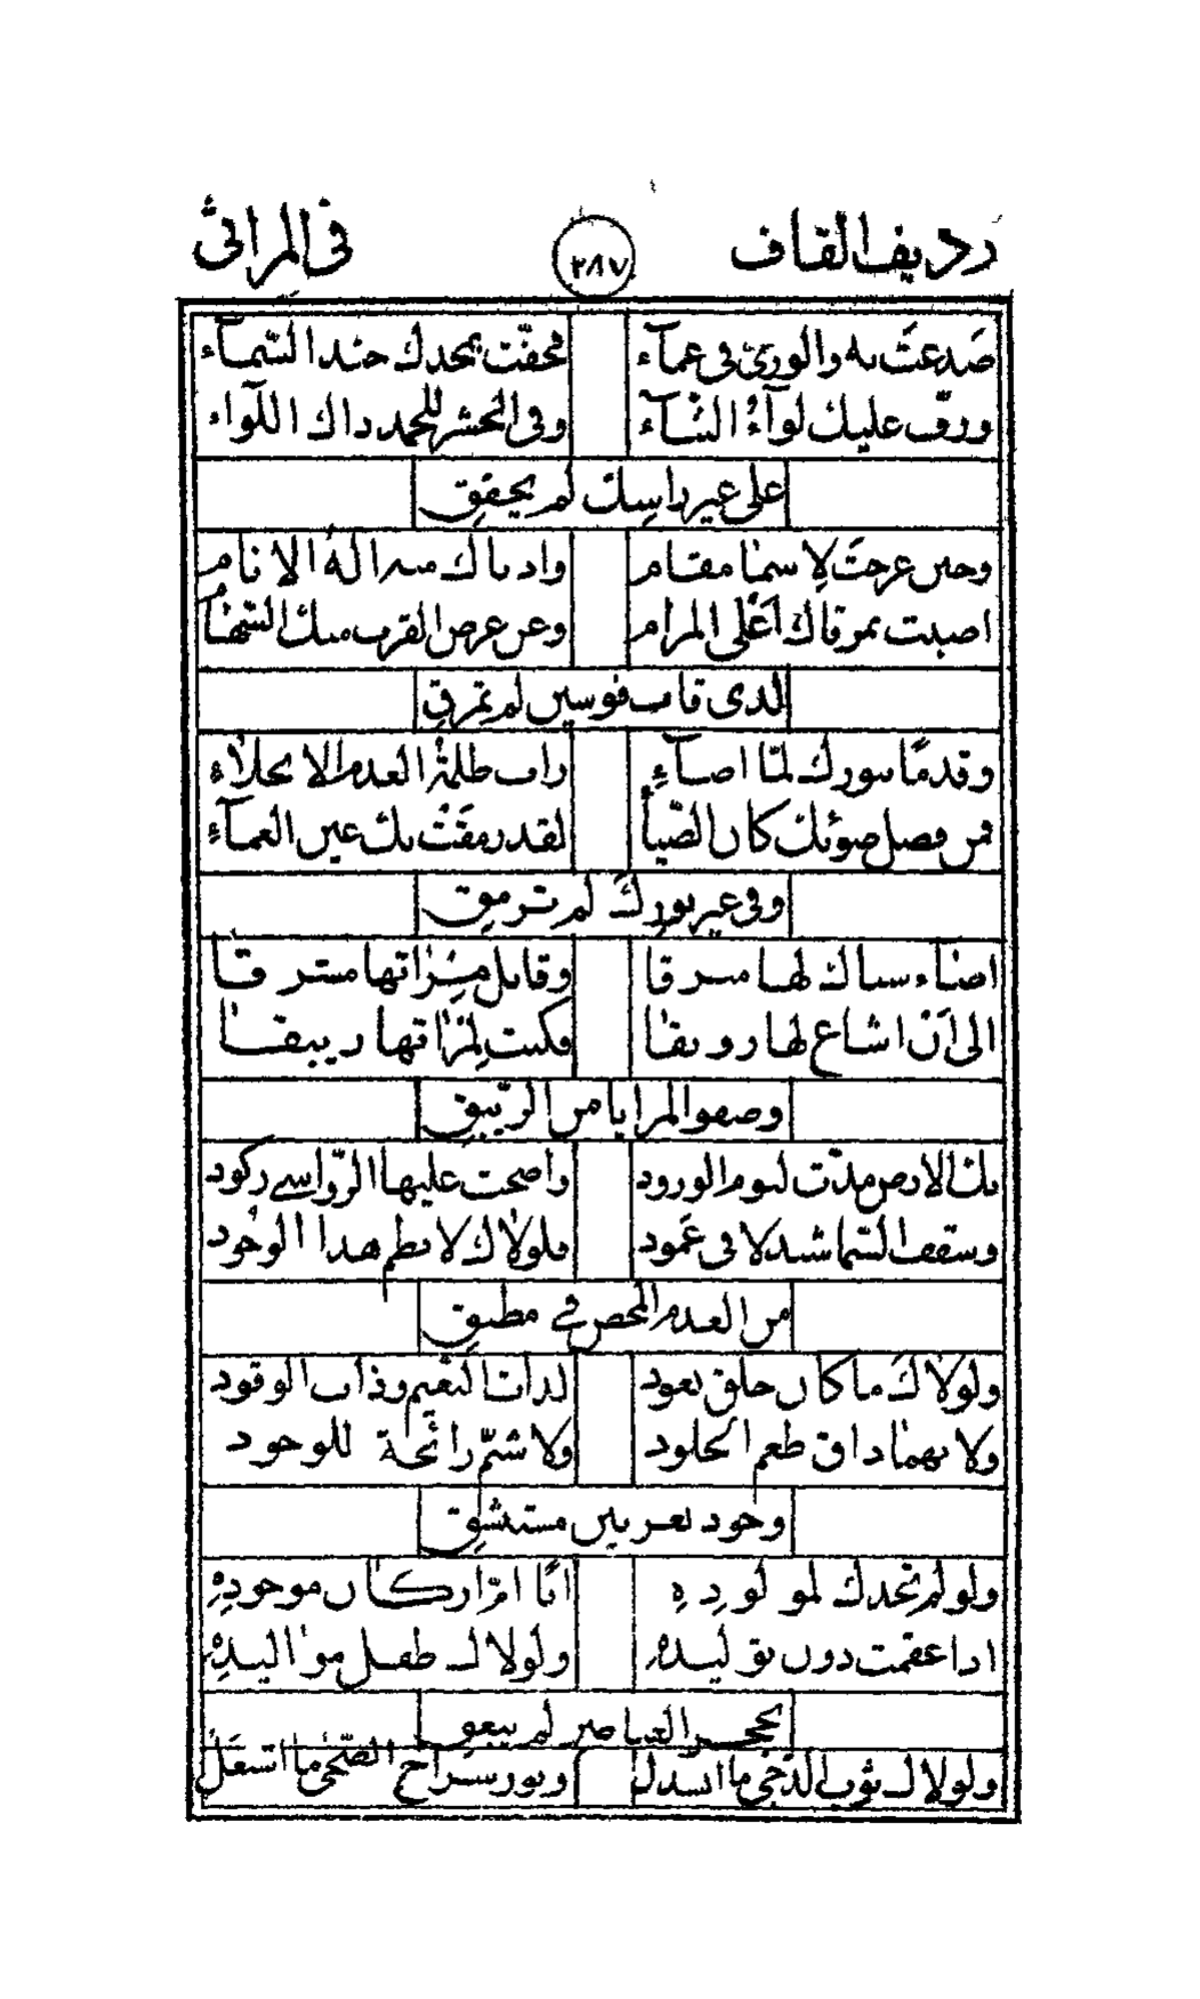 رديف القاف ٢٨٧ في المراثي
صَدعتَ به والورىٰ في عمآء فحفّت بمجدك جندا لسّمآء
ورفّ عليك لوآءُ الثنآء وفي الحشر للحمد ذاك اللّواء
على غير راسِك لم يخفق
وحين عرجتَ لِاسمٰا مقام وادناك منه اله الانام
اصبت بمرقاك اَعْلى المرام وعن عرض القرب منك السّهام
لدى قاب قوسين لم تمرقِ
وقدمًا بنورك لمّا اضآءِ رات ظلمةُ العدم الانجلاءِ
فمن فضل ضوئك كان الضّيآ لقد رمقَتْ بك عين العمآءِ
وفي غير نورك لم ترمقِ
اضاء سناك لها مبرقا وقابل مِرْاٰتها مشرقا
الى اَنْ اشاع لها رونقا فكنت لِمرْاٰتها زيبقا
وصفو المرايا من الزّيبق
بك الارض مدّت ليوم الورود واضحت عليها الرّواسي ركود
وسقف السّما شيد لا في عَمود فلولاك لانطم هذا الوجُود
من العدم المحض في مطبق
ولولاكَ ما كان خلق يعود لذات النّعيم وذات الوقود
ولا بهما ذاق طعم الخلود ولا شمّ رائحة للوجود
وجود بعرنين مستنشق
ولو لم نجدك لمولودِهِ انّا امّ اركان موجودِهِ
اذا عقمت دون توليدهِ ولولاك طفل مواليدِهِ
بحجر العناصر لم يبعق
ولولاك ثوب الدّجٰى ما انسدل ونور سراج الضّحٰى ما اشتعل